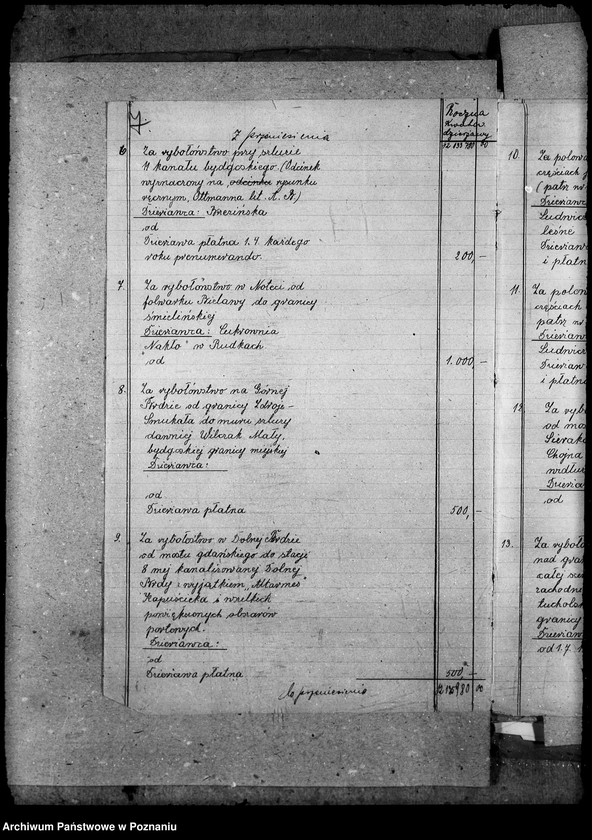 Z przeniesienia
Roczna
Kwota
dzierżawy
6. Za rybołówstwo przy szluzie
11 kanału bydgoskiego. (Odcinek
wyznaczony na odcinku rysunku
ręcznym, Ottmanna lit. A. B.)
Dzierżawca: Brzezińska
od
Dzierżawa płatna 1.4. każdego
roku prenumerando. 200,—
7. Za rybołówstwo w Noteci od
folwarku Bielawy do granicy
śmielińskiej
Dzierżawca: Cukrownia
Nakło" w Rudkach
od 1.000,—
8. Za rybołówstwo na Górnej
Brdzie od granicy Zdroje-
Smukała do muru szluzy
dawniej Wilczak Mały,
bydgoskiej granicy miejskiej
Dzierżawca:
od
Dzierżawa płatna 500,—
9. Za rybołóstwo w Dolnej Brdzie
od mostu gdańskiego do stacji
8 mej kanalizowanej Dolnej
Brdy z wyjątkiem "Altarmes"
Kapuścieka i wielkich
powiększonych obszarów
portowych.
Dzierżawca:
od
Dzierżawa płatna 500,—
Do przeniesienia
10. Za polowa
częściach
(patrz nr
Dzierżawca
Ludwick
leśne
Dzierżaw
i płatn
11. Za polow
częściach
patrz nr
Dzierżawc
Ludwic
Dzierżaw
i płatna
12. Za ryb
od mos
Sierako
Chojna
wzdłu
Dzierżaw
od
13. Za rybołó
nad gra
całej sze
zachodnie
tucholsk
granicy
Dzierżaw
od 1.7.
Archiwum Państwowe w Poznaniu